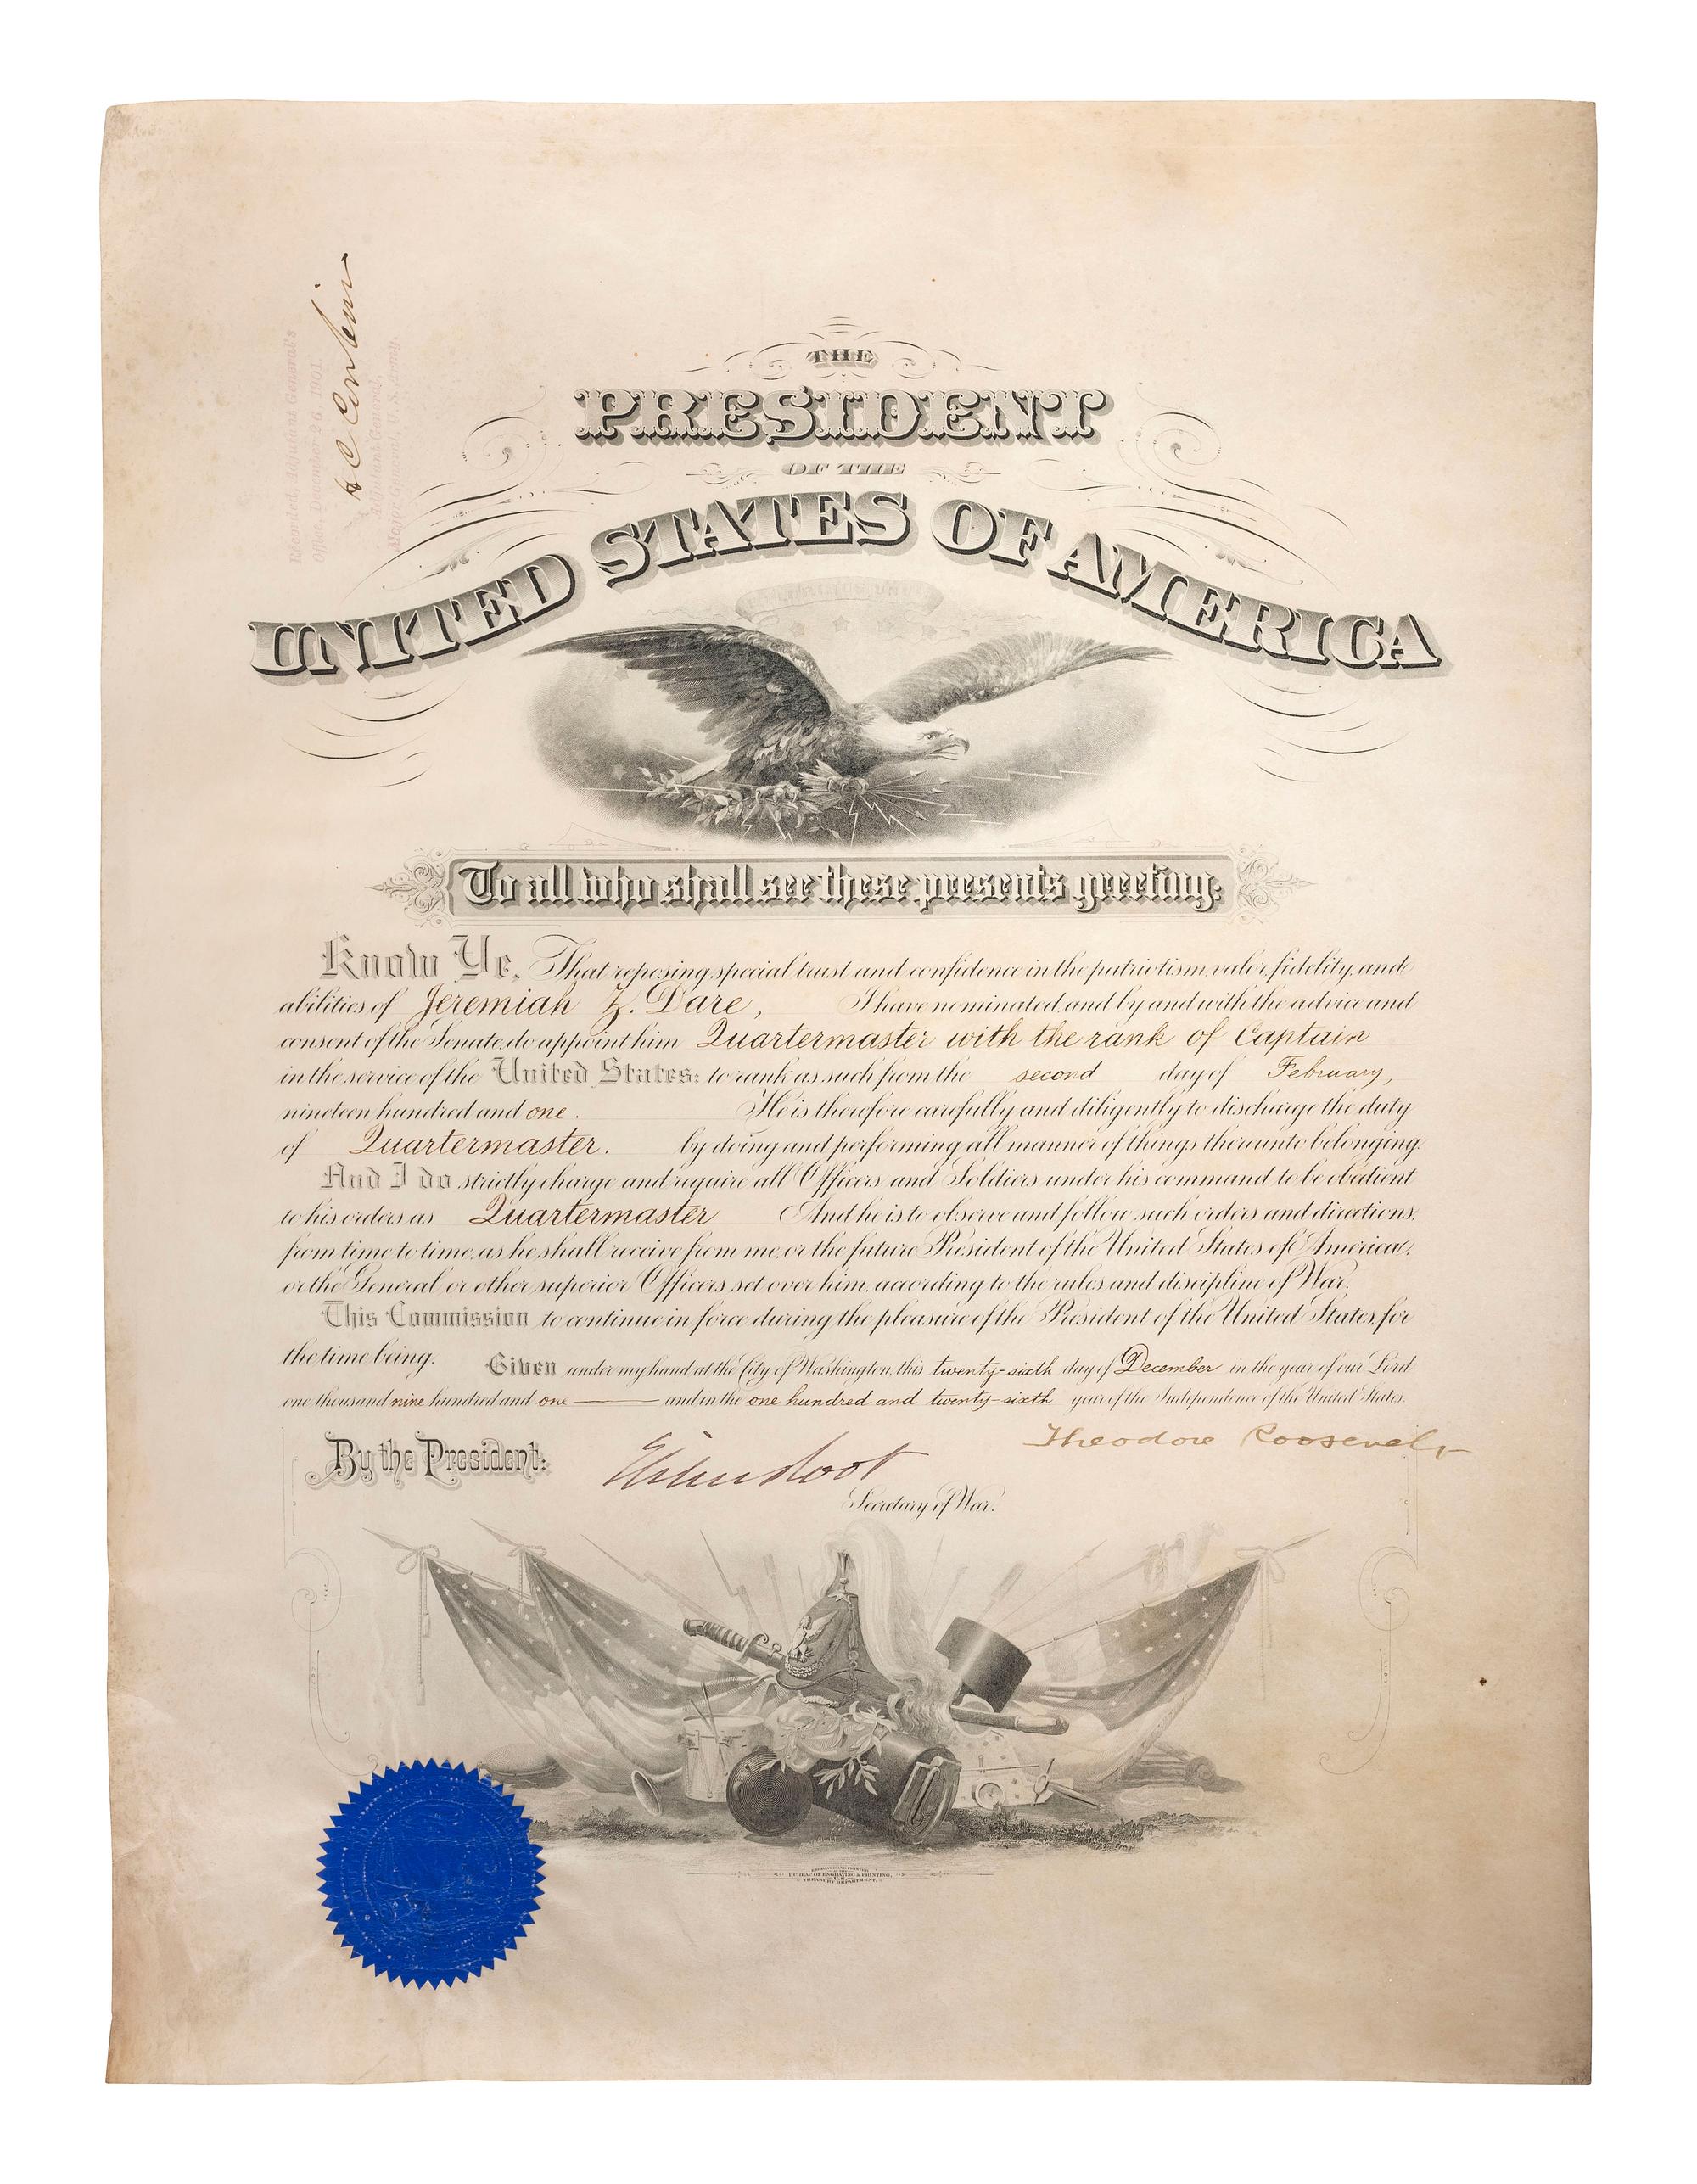 Recorded, Adjutant General's
Office, December 26, 1901
H C Corbin
Adjutant General,
Major General, U. S. Army.
THE
PRESIDENT
OF THE
UNITED STATES OF AMERICA
To all who shall see these presents greeting:
Know Ye, That reposing special trust and confidence in the patriotism, valor, fidelity, and
abilities of Jeremiah Z. Dare, I have nominated, and by and with the advice and
consent of the Senate, do appoint him Quartermaster with the rank of Captain
in the service of the United States: to rank as such from the second day of February,
nineteen hundred and one. He is therefore carefully and diligently to discharge the duty
of Quartermaster. by doing and performing all manner of things thereunto belonging.
And I do strictly charge and require all Officers and Soldiers under his command to be obedient
to his orders as Quartermaster And he is to observe and follow such orders and directions,
from time to time, as he shall receive from me, or the future President of the United States of America,
or the General or other superior Officers set over him, according to the rules and discipline of War.
This Commission to continue in force during the pleasure of the President of the United States, for
the time being. Given under my hand at the City of Washington, this twenty-sixth day of December in the year of our Lord
one thousand nine hundred and one and in the one hundred and twenty-sixth year of the Independence of the United States.
Theodore Roosevelt
By the President:
Elihu Root
Secretary of War.
BUREAU OF ENGRAVING & PRINTING,
TREASURY DEPARTMENT.